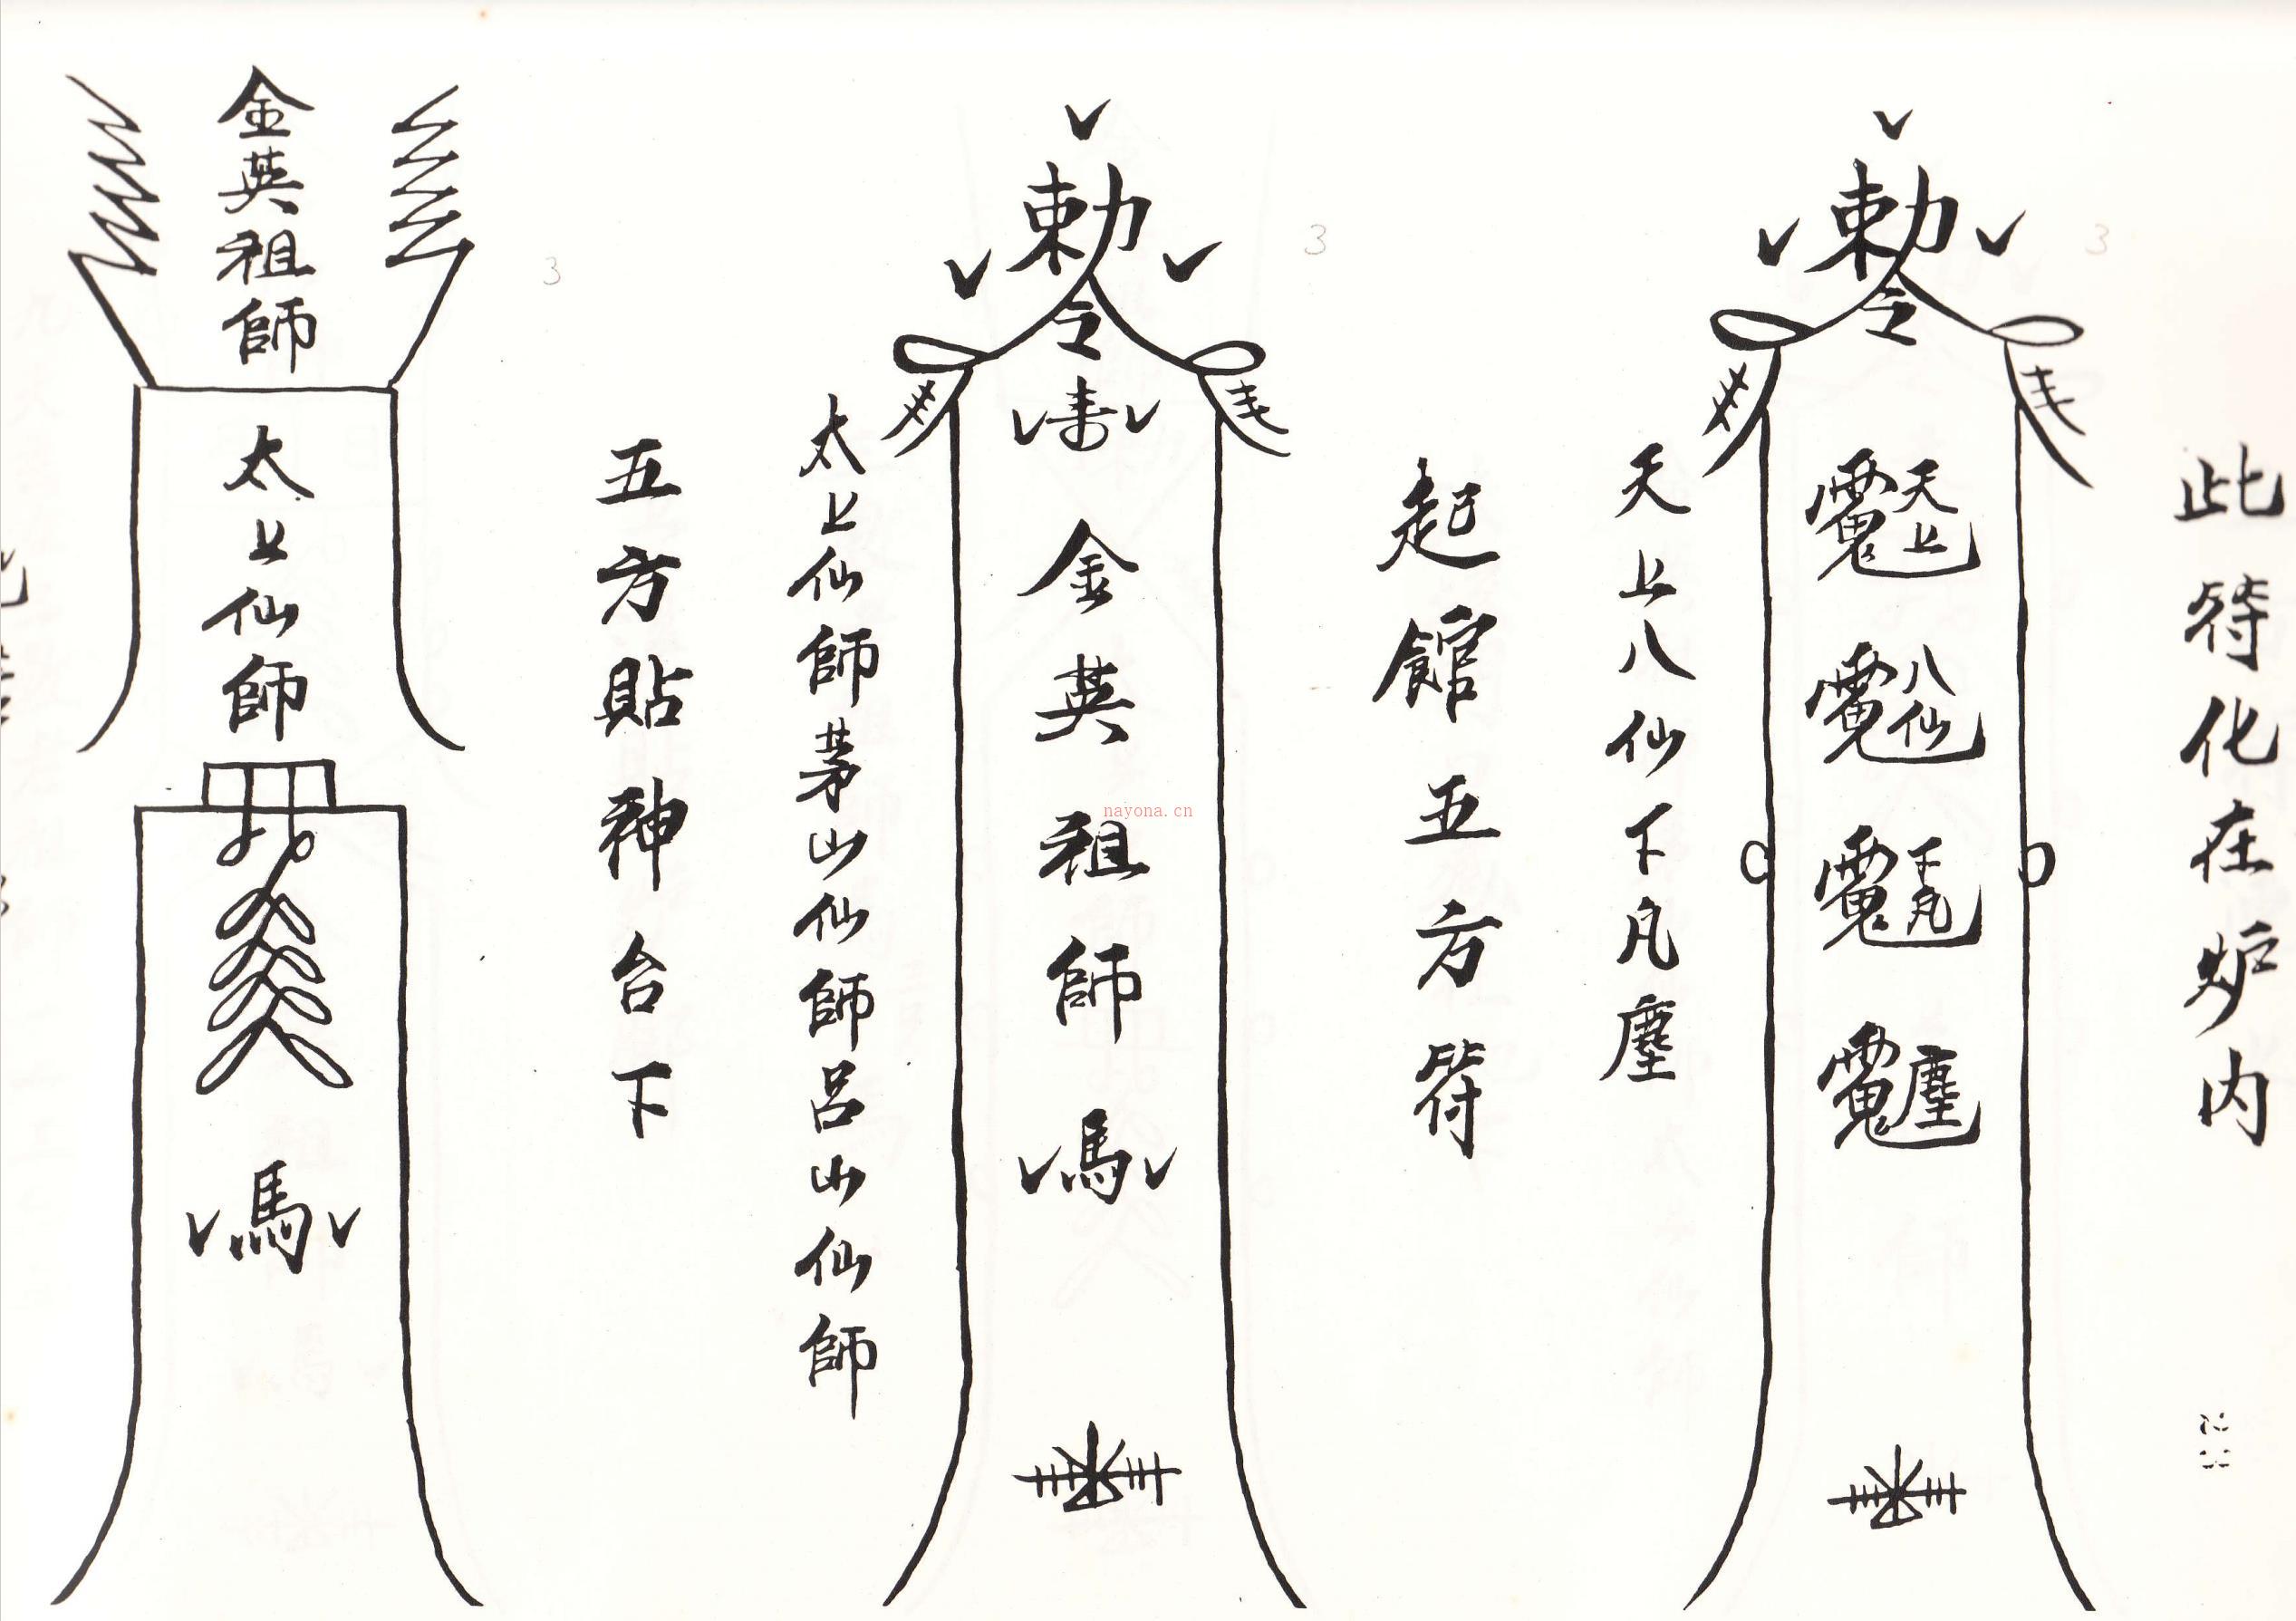 此符化在炉内
敕令
天上
八仙
下凡
塵
天上八仙下凡塵
起館五方符
敕令
金英祖師
馬
太上仙師茅山仙師呂山仙師
五方貼神台下
金英祖師
太上仙師
馬
3
3
3
nayona.cn